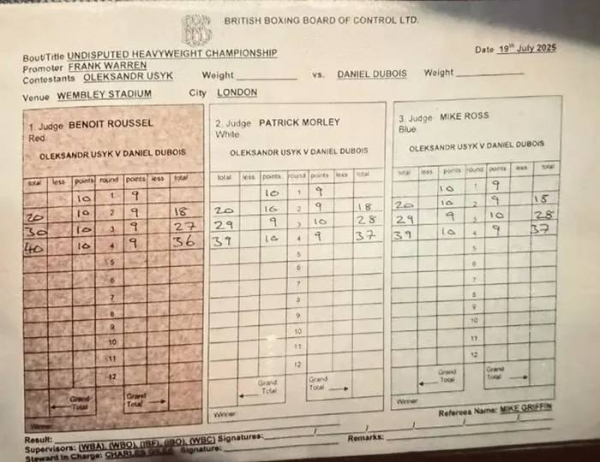 BRITISH BOXING BOARD OF CONTROL LTD.
Bout/Title UNDISPUTED HEAVYWEIGHT CHAMPIONSHIP Date 19th July 2025
Promoter FRANK WARREN
Contestants OLEKSANDR USYK Weight vs. DANIEL DUBOIS Weight
Venue WEMBLEY STADIUM City LONDON
1. Judge BENOIT ROUSSEL
Red
OLEKSANDR USYK V DANIEL DUBOIS
total less points round points less total
10 1 9
20 10 2 9 18
30 10 3 9 27
40 10 4 9 36
5
6
7
8
9
10
11
12
Grand Total Grand Total
Winner
2. Judge PATRICK MORLEY
White
OLEKSANDR USYK V DANIEL DUBOIS
total less points round points less total
10 1 9
20 10 2 9 18
29 9 3 10 28
39 10 4 9 37
5
6
7
8
9
10
11
12
Grand Total Grand Total
Winner
3. Judge MIKE ROSS
Blue
OLEKSANDR USYK V DANIEL DUBOIS
total less points round points less total
10 1 9
20 10 2 9 18
29 9 3 10 28
39 10 4 9 37
5
6
7
8
9
10
11
12
Grand Total Grand Total
Winner
Referee Name: MIKE GRIFFIN
Result:
Supervisors: (WBA), (WBO), (IBF), (IBO), (WBC) Signatures: Remarks:
Steward in Charge: CHARLES Signature: